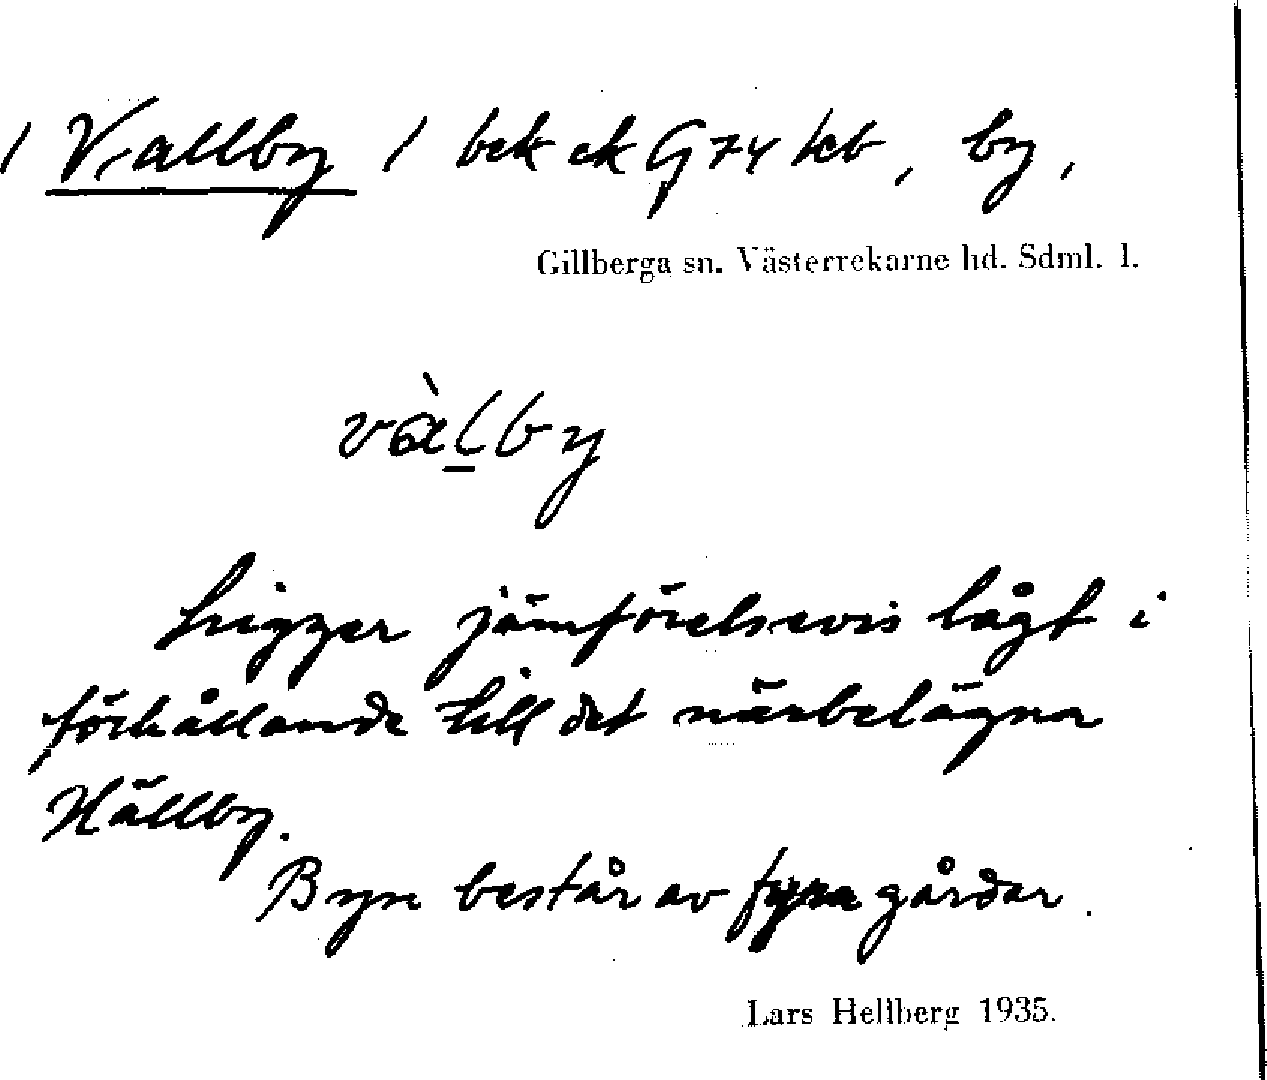 / Vallby / bek ek G 74 kb, by,
Gillberga sn. Västerrekarne hd. Sdml. l.
vàlby
Ligger jämförelsevis lågt i
förhållande till det närbelägna
Hällby.
Byn består av fyra gårdar.
Lars Hellberg 1935.